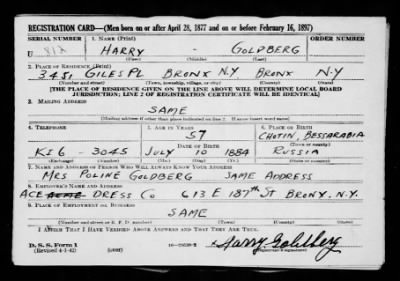 REGISTRATION CARD—(Men born on or after April 28, 1877 and on or before February 16, 1897)
SERIAL NUMBER 1. NAME (Print) ORDER NUMBER
U HARRY - GOLDBERG
(First) (Middle) (Last)
2. PLACE OF RESIDENCE (Print)
3451 GILES PL BRONX N.Y BRONX N-Y
(Number and street) (Town, township, village, or city) (County) (State)
[THE PLACE OF RESIDENCE GIVEN ON THE LINE ABOVE WILL DETERMINE LOCAL BOARD
JURISDICTION; LINE 2 OF REGISTRATION CERTIFICATE WILL BE IDENTICAL]
3. MAILING ADDRESS
SAME
[Mailing address if other than place indicated on line 2. If same insert word same]
4. TELEPHONE 5. AGE IN YEARS 6. PLACE OF BIRTH
57 CHOTIN, BESSARABIA
DATE OF BIRTH (Town or county)
KI6 - 3045 JULY 10 1884 RUSSIA
(Exchange) (Number) (Mo.) (Day) (Yr.) (State or country)
7. NAME AND ADDRESS OF PERSON WHO WILL ALWAYS KNOW YOUR ADDRESS
MRS POLINE GOLDBERG SAME ADDRESS
8. EMPLOYER'S NAME AND ADDRESS
ACE DRESS CO 613 E 187th ST BRONX, N.Y.
9. PLACE OF EMPLOYMENT OR BUSINESS
SAME
(Number and street or R. F. D. number) (Town) (County) (State)
I AFFIRM THAT I HAVE VERIFIED ABOVE ANSWERS AND THAT THEY ARE TRUE.
D. S. S. Form 1
(Revised 4-1-42) (over) Harry Goldberg
(Registrant's signature)